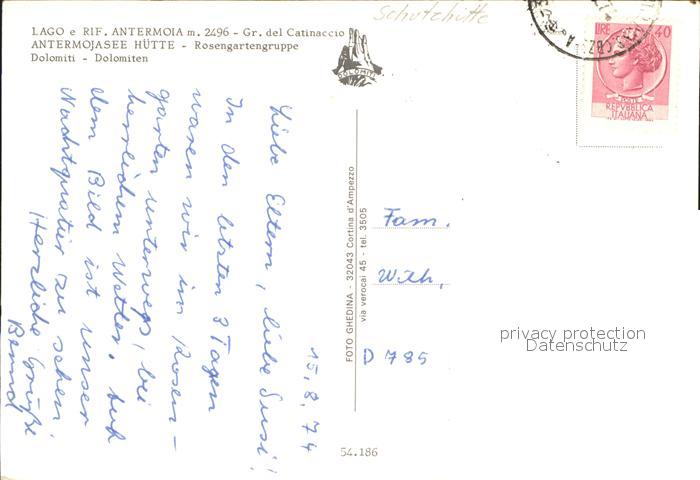 Schutzhütte
LAGO e RIF. ANTERMOIA m. 2496 - Gr. del Catinaccio
ANTERMOJASEE HÜTTE - Rosengartengruppe
Dolomiti - Dolomiten
DOLOMITI
LIRE 40
POSTE
REPVBBLICA
ITALIANA
15.8.74
Liebe Eltern, liebe Susi!
In den letzten 3 Tagen
waren wir im Rosen-
garten unterwegs, bei
herrlichem Wetter. Auf
dem Bild ist unser
Nachtquatier zu sehen.
Herzliche Grüße
Bernd
FOTO GHEDINA - 32043 Cortina d'Ampezzo
via verocai 45 - tel. 3505
Fam.
With,
D 785
privacy protection
Datenschutz
54.186